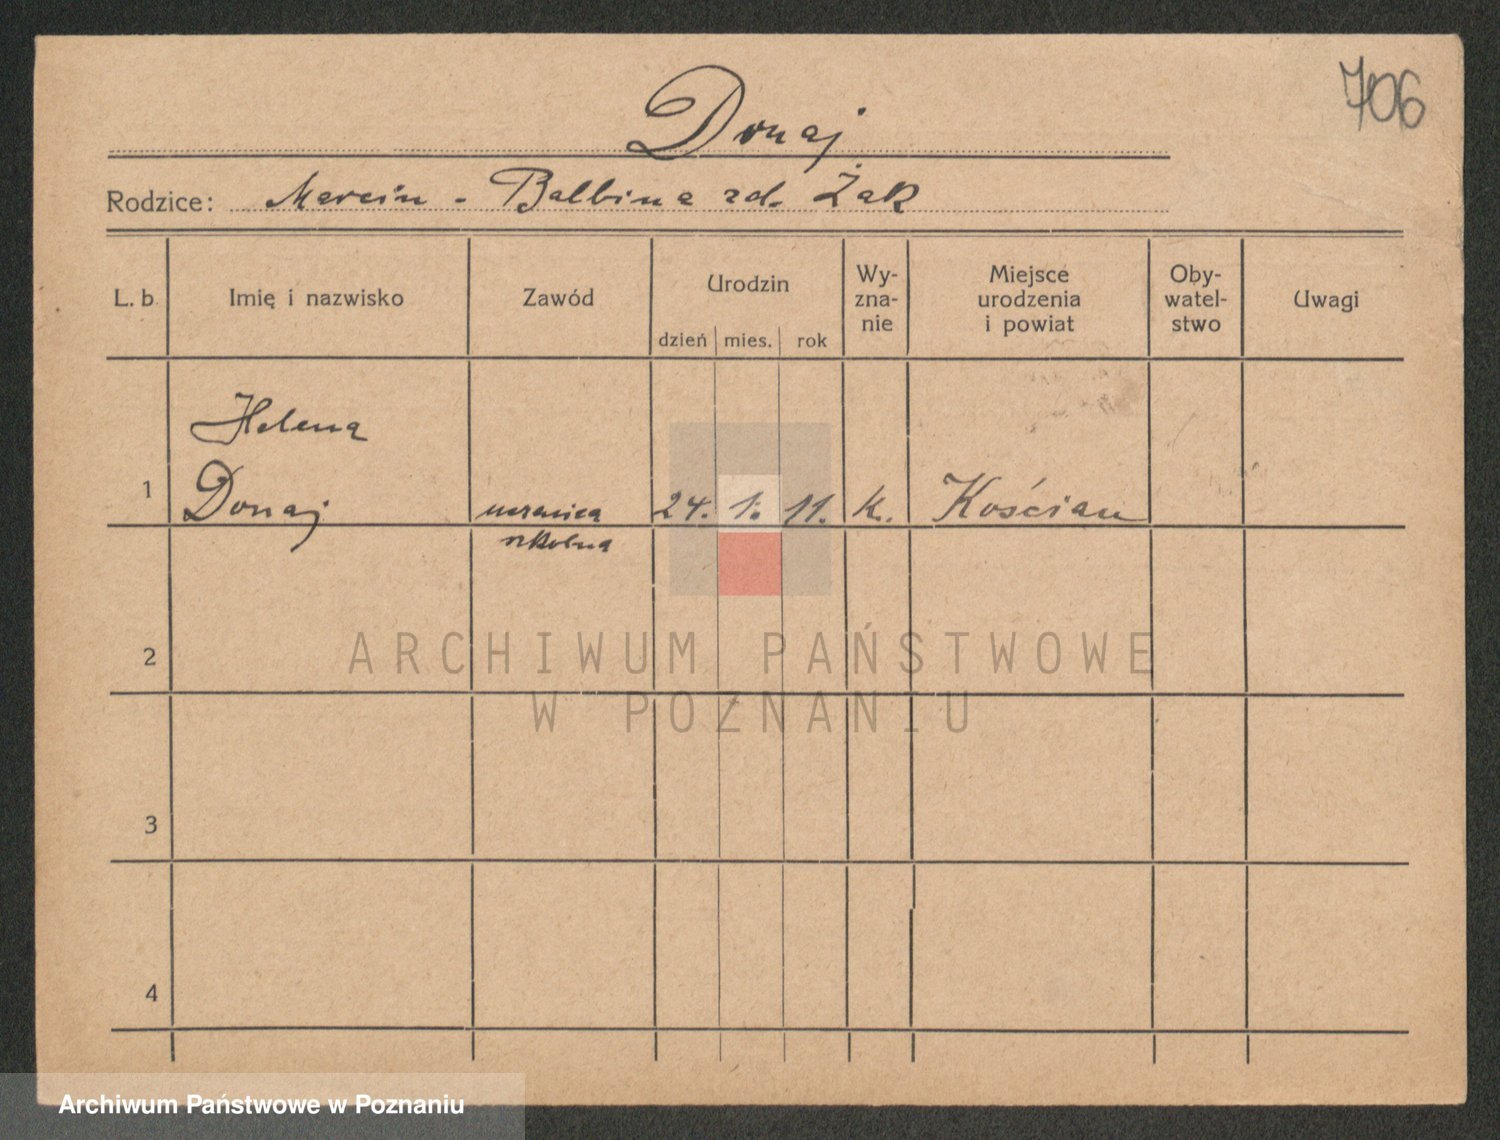 706
Donaj
Rodzice: Marcin - Balbina zd. Żak
L. b. Imię i nazwisko Zawód Urodzin dzień mies. rok Wy-zna-nie Miejsce urodzenia i powiat Oby-watel-stwo Uwagi
Helena
1 Donaj uczenica 24. 1. 11. k. Kościan
szkolna
2
ARCHIWUM PAŃSTWOWE
W POZNANIU
3
4
Archiwum Państwowe w Poznaniu